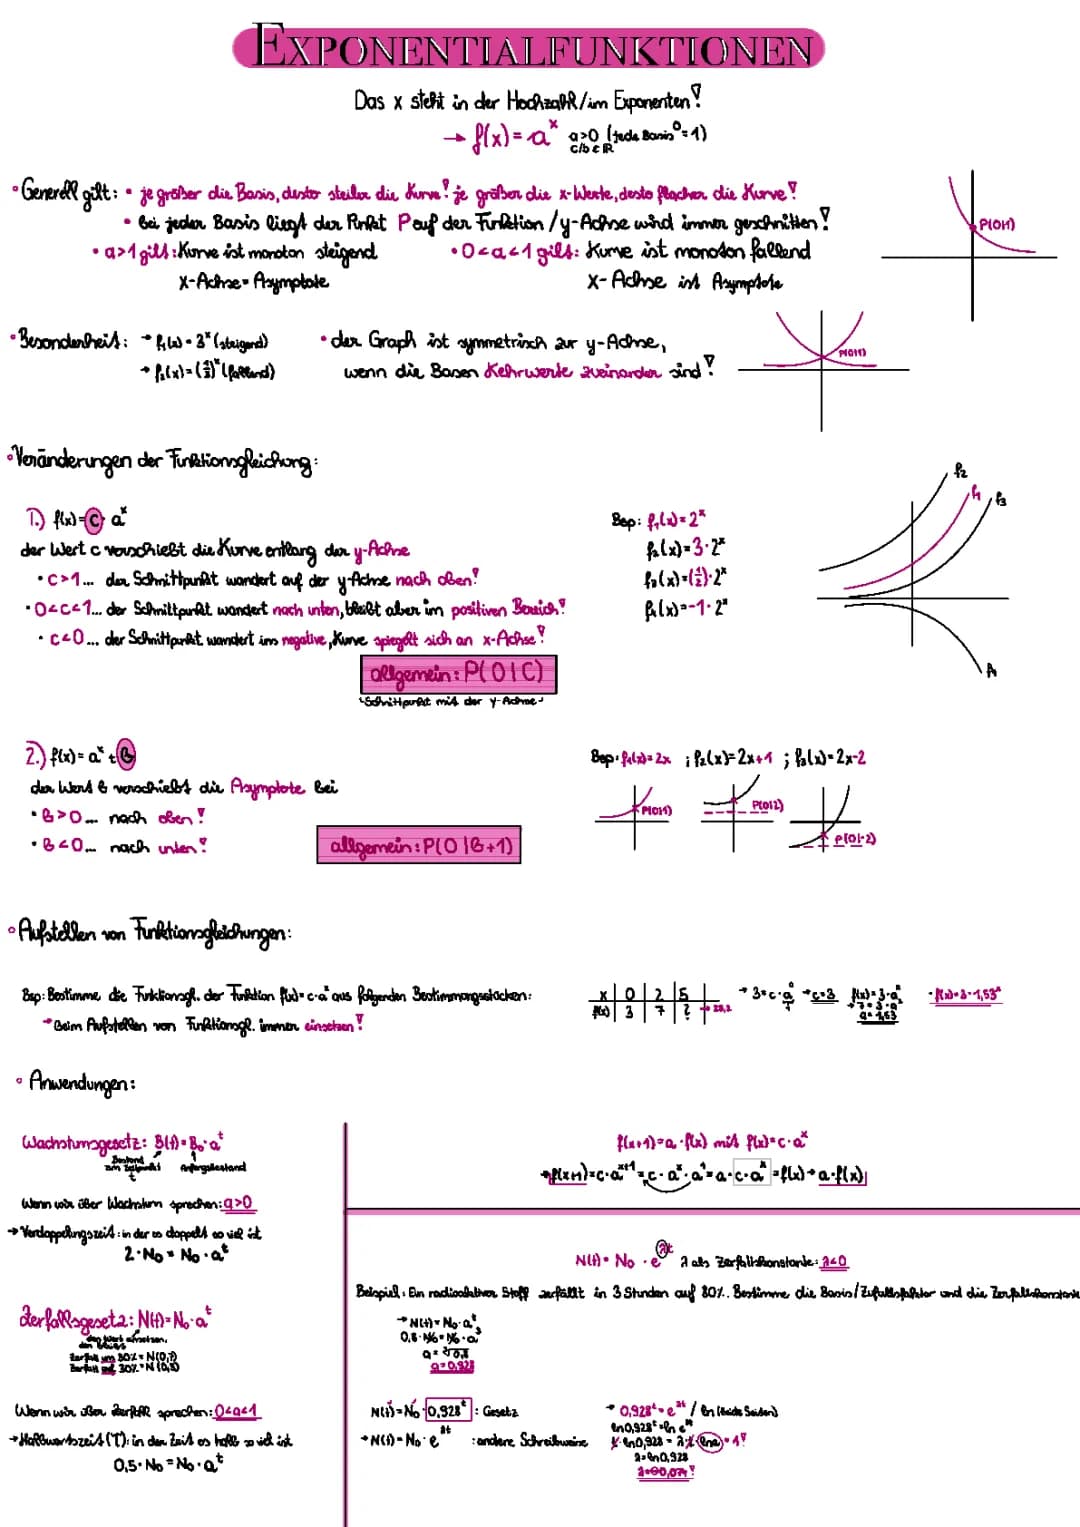 EXPONENTIALFUNKTIONEN
Das x steht in der Hochzahl/im Exponenten!
→ f(x) = a^x a>0 (jede Basis^0 = 1)
c/b ∈ ℝ
• Generell gilt: • je größer die Basis, desto steiler die Kurve! je größer die x-Werte, desto flacher die Kurve!
• bei jeder Basis liegt der Punkt P auf der Funktion / y-Achse wird immer geschnitten!
• a>1 gilt: Kurve ist monoton steigend • 0<a<1 gilt: Kurve ist monoton fallend
x-Achse = Asymptote x-Achse ist Asymptote
P(0|1)
• Besonderheit: → f₁(x) = 3^x (steigend) • der Graph ist symmetrisch zur y-Achse,
→ f₂(x) = (1/3)^x (fallend) wenn die Basen Kehrwerte zueinander sind!
P(0|1)
• Veränderungen der Funktionsgleichung:
1.) f(x) = c · a^x
der Wert c verschiebt die Kurve entlang der y-Achse
• c>1... der Schnittpunkt wandert auf der y-Achse nach oben!
• 0<c<1... der Schnittpunkt wandert nach unten, bleibt aber im positiven Bereich!
• c<0... der Schnittpunkt wandert ins negative, Kurve spiegelt sich an x-Achse!
allgemein: P(0|C)
Schnittpunkt mit der y-Achse
Bsp: f₁(x) = 2^x
f₂(x) = 3·2^x
f₃(x) = (1/2)·2^x
f₄(x) = -1·2^x
f₂
f₁
f₃
2.) f(x) = a^x + b
der Wert b verschiebt die Asymptote bei
• b>0... nach oben!
• b<0... nach unten!
allgemein: P(0|b+1)
Bsp: f₁(x) = 2x ; f₂(x) = 2x+1 ; f₃(x) = 2x-2
P(0|1) P(0|2) P(0|-2)
• Aufstellen von Funktionsgleichungen:
Bsp: Bestimme die Funktionsgl. der Funktion f(x) = c·a^x aus folgenden Bestimmungsstücken:
→ Beim Aufstellen von Funktionsgl. immer einsetzen!
x | 0 | 2 | 5
f(x) | 3 | 7 | ? → 25,2
→ 3 = c·a^0 → c = 3 f(x) = 3·a^x • f(x) = 3·1,53^x
→ 7 = 3·a^2
a = 1,53
• Anwendungen:
Wachstumsgesetz: B(t) = B₀·a^t
Bestand zum Zeitpunkt t Anfangsbestand
Wenn wir über Wachstum sprechen: a>0
→ Verdoppelungszeit: in der es doppelt so viel ist
2·N₀ = N₀·a^t
Zerfallsgesetz: N(t) = N₀·a^t
Zerfall um 30% = N(0,7)
Zerfall auf 30% = N(0,3)
Wenn wir über Zerfall sprechen: 0<a<1
→ Halbwertszeit (T): in der Zeit es halb so viel ist
0,5·N₀ = N₀·a^t
f(x+1) = a·f(x) mit f(x) = c·a^x
→ f(x+1) = c·a^x+1 = c·a^x·a^1 = a·c·a^x = f(x) → a·f(x)
N(t) = N₀·e^λt λ als Zerfallskonstante: λ<0
Beispiel: Ein radioaktiver Stoff zerfällt in 3 Stunden auf 80%. Bestimme die Basis/Zufallsfaktor und die Zerfallskonstante
→ N(t) = N₀·a^t
0,8·N₀ = N₀·a^3
a = ³√0,8
a = 0,928
N(t) = N₀·0,928^t : Gesetz
→ N(t) = N₀·e^λt : andere Schreibweise
→ 0,928^t = e^λt / ln (beide Seiten)
ln 0,928^t = ln e^λt
t·ln 0,928 = λ·t·(ln e) = 1!
λ = ln 0,928
λ = -0,074!